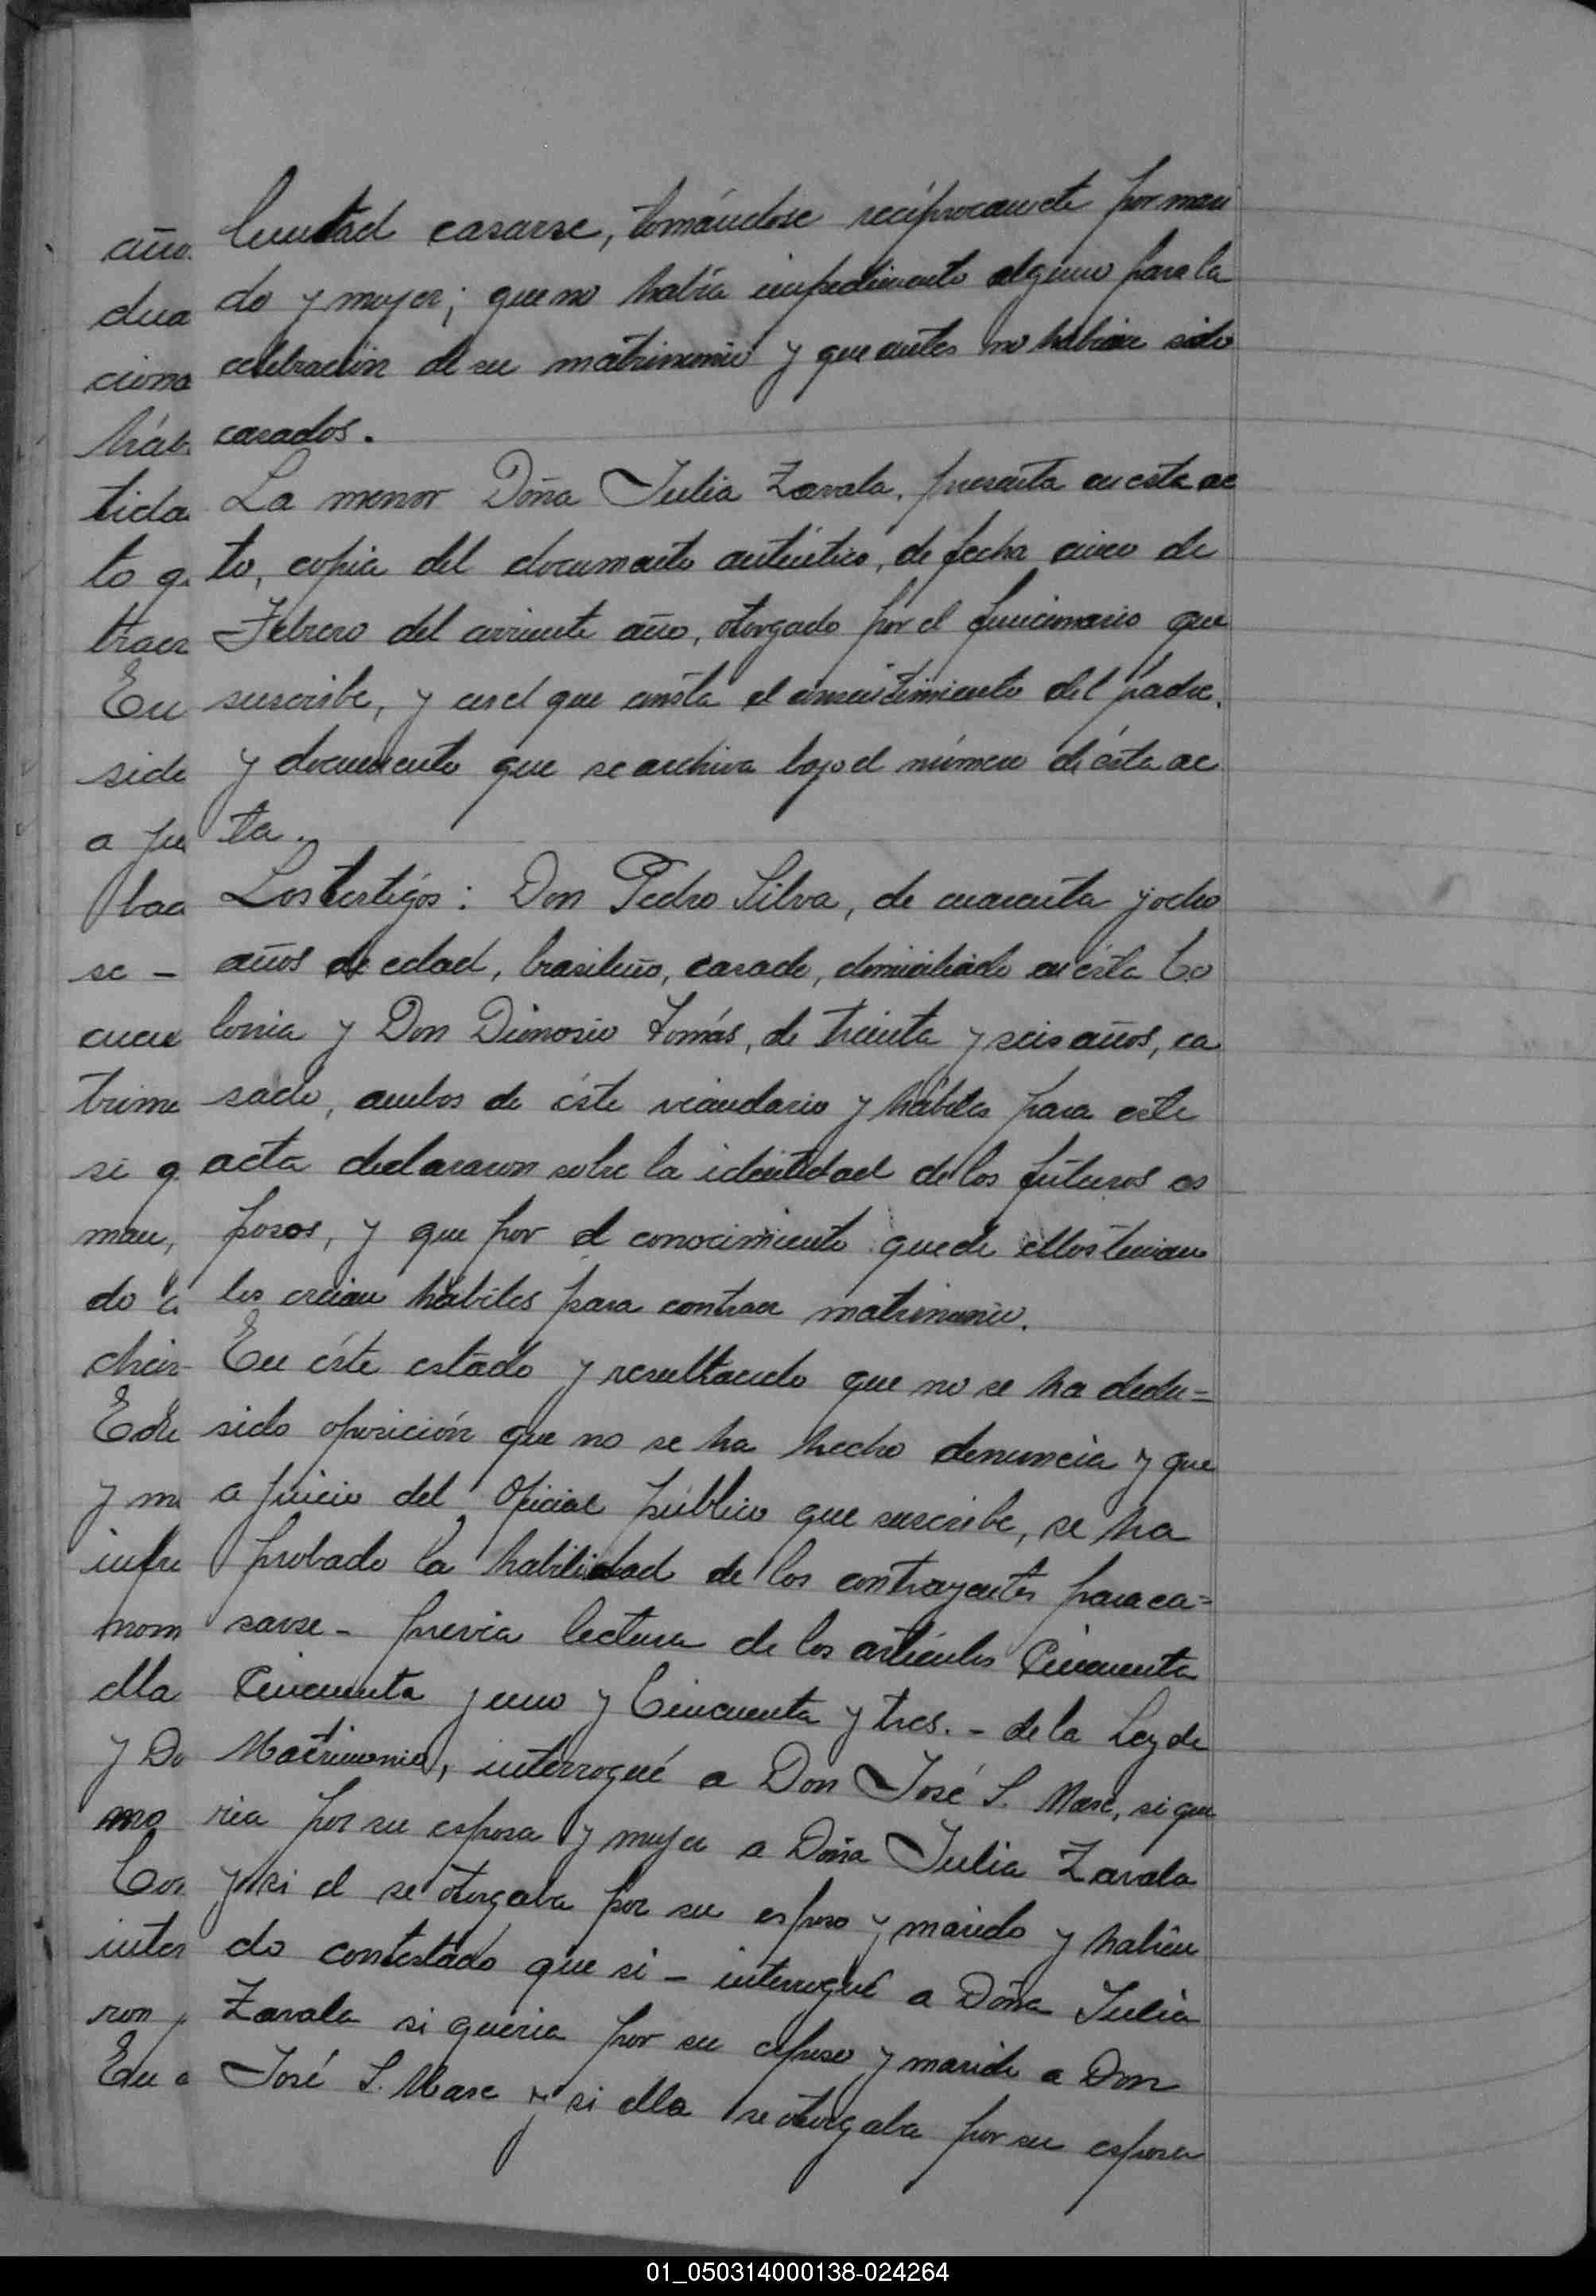 luntad casarse, tomándose recíprocamente por mari
do y mujer; que no había impedimento alguno para la
celebración de su matrimonio y que antes no habían sido
casados.
La menor Doña Julia Zavala, presenta en este ac
to, copia del documento auténtico, de fecha cinco de
Febrero del corriente año, otorgado por el funcionario que
suscribe, y en el que consta el consentimiento del padre,
y documento que se archiva bajo el número de ésta ac
ta.
Los testigos: Don Pedro Silva, de cuarenta y ocho
años de edad, brasileño, casado, domiciliado en ésta Co
lonia y Don Dionosio Tomás, de treinta y seis años, ca
sado, ambos de éste vecindario y hábiles para este
acta declararon sobre la identidad de los futuros es
posos, y que por el conocimiento que de ellos tenian
los creian hábiles para contraer matrimonio.
En éste estado y resultando que no se ha dedu=
sido oposición que no se ha hecho denuncia y que
a juicio del Oficial público que suscribe, se ha
probado la habilidad de los contrayentes para ca=
sarse - previa lectura de los artículos Cincuenta
Cincuenta y uno y Cincuenta y tres. - de la Ley de
Matrimonio, interrogué a Don José S. Mase, si que
ria por su esposa y mujer a Doña Julia Zavala
y si el se otorgaba por su esposo y marido y habien
do contestado que si - interrogué a Doña Julia
Zavala si queria por su esposo y marido a Don
José S. Mase y si ella se otorgaba por su esposa
año.
dua
ciona
háb
tida
to q
traer
En
side
a pu
bac
se -
cuen
trimo
si q
man,
do a
chis-
Ede
y m
infr
nom
ella
y Do
mo
Con
inter
ron y
En a
01_050314000138-024264